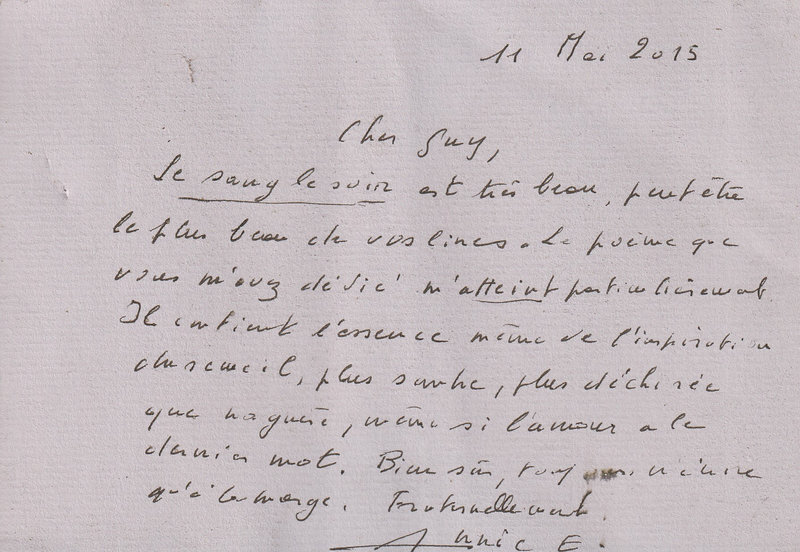 11 Mai 2015
Cher Guy,
Le sang le soir est très beau, peut être
le plus beau de vos livres. Le poème que
vous m'avez dédié m'atteint particulièrement.
Il contient l'essence même de l'inspiration
du recueil, plus sombre, plus déchirée
que naguère, même si l'amour a le
dernier mot. Bien sûr,
qu'à la marge. Fraternellement
Annie E.